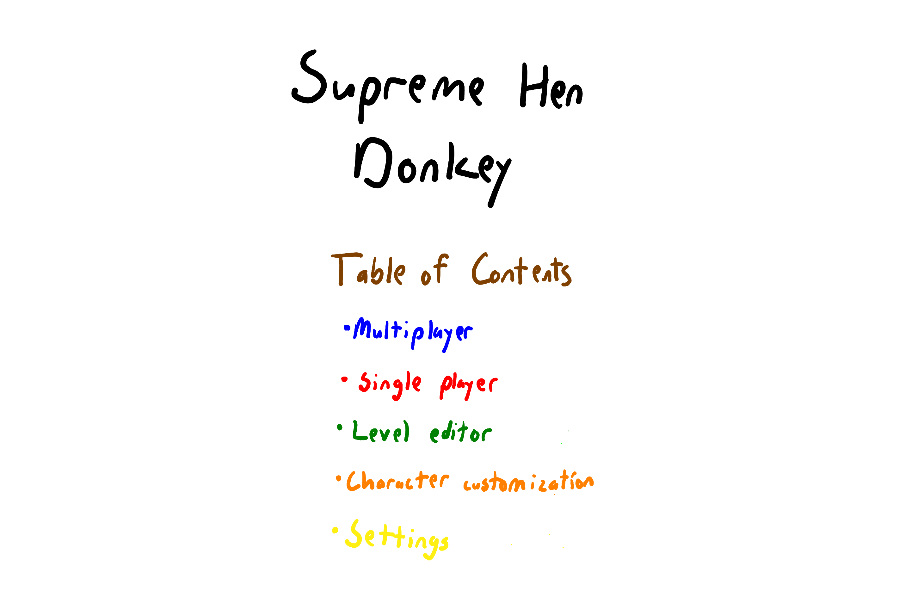 Supreme Hen
Donkey
Table of Contents
•Multiplayer
•Single player
•Level editor
•Character customization
•Settings